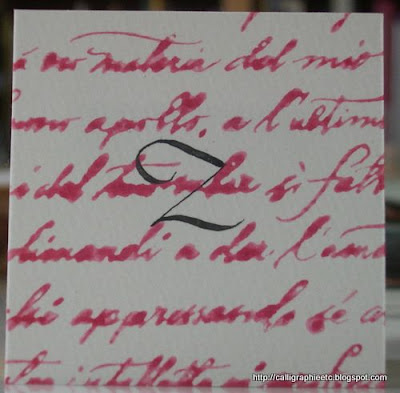 materia del mio
uono apollo, a l'ultim
i del tuo sì fatt
Z
dimandi a dar l'ama
appressando sé a
intelletto
http://calligraphieetc.blogspot.com